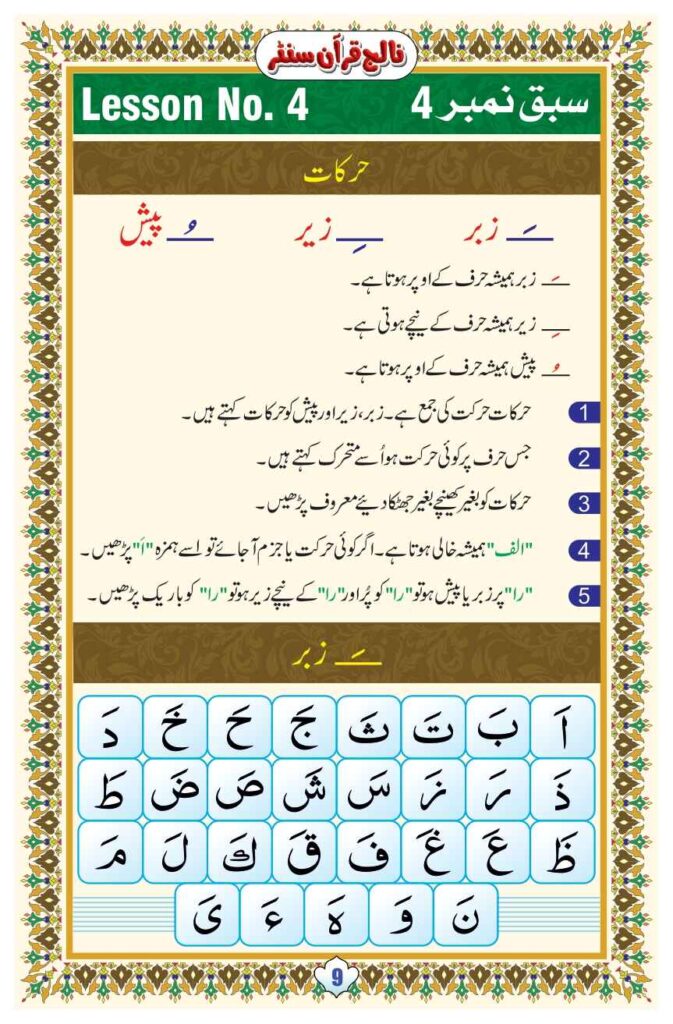 نالج قرآن سنٹر
Lesson No. 4 سبق نمبر 4
حرکات
ـَـ زبر ـِـ زیر ـُـ پیش
ـَـ زبر ہمیشہ حرف کے اوپر ہوتا ہے۔
ـِـ زیر ہمیشہ حرف کے نیچے ہوتی ہے۔
ـُـ پیش ہمیشہ حرف کے اوپر ہوتا ہے۔
1 حرکات حرکت کی جمع ہے۔ زبر، زیر اور پیش کو حرکات کہتے ہیں۔
2 جس حرف پر کوئی حرکت ہو اُسے متحرک کہتے ہیں۔
3 حرکات کو بغیر کھینچے بغیر جھٹکا دیئے معروف پڑھیں۔
4 "الف" ہمیشہ خالی ہوتا ہے۔ اگر کوئی حرکت یا جزم آ جائے تو اِسے ہمزہ "أ" پڑھیں۔
5 "را" پر زبر یا پیش ہو تو "را" کو پُر اور "را" کے نیچے زیر ہو تو "را" کو باریک پڑھیں۔
ـَـ زبر
اَ بَ تَ ثَ جَ حَ خَ دَ
ذَ رَ زَ سَ شَ صَ ضَ طَ
ظَ عَ غَ فَ قَ كَ لَ مَ
نَ وَ هَ ءَ یَ
9